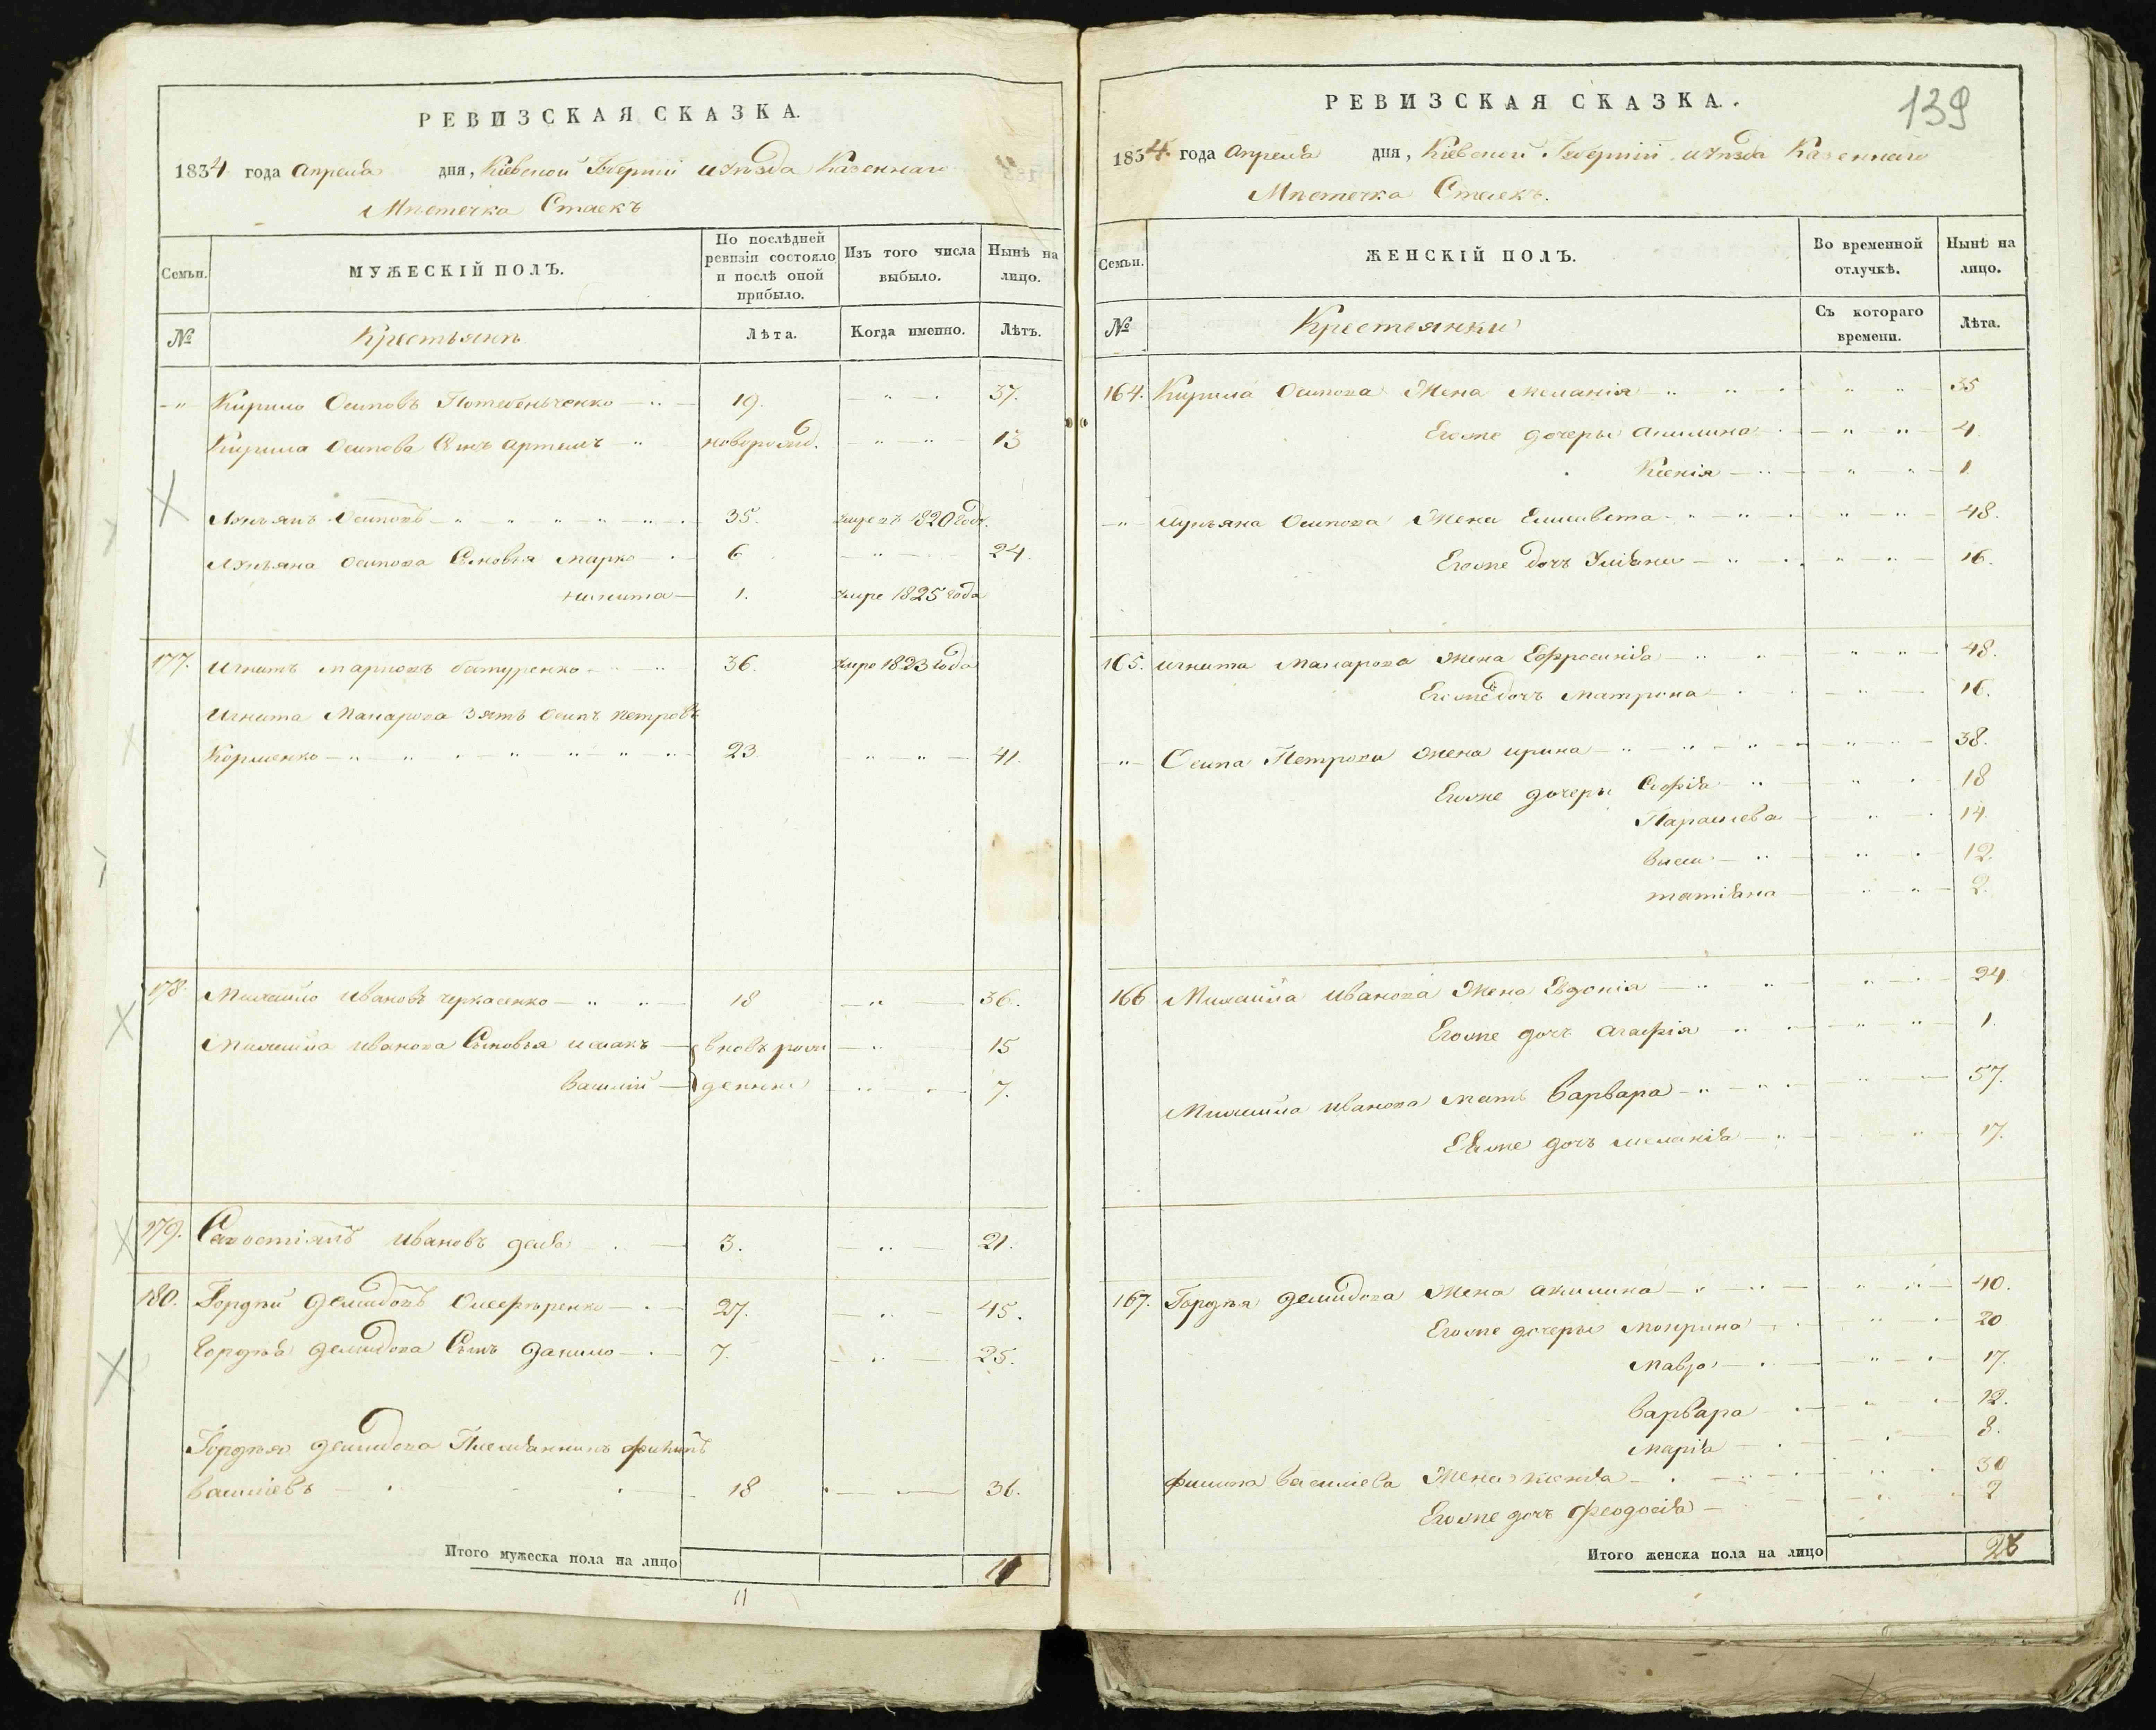 РЕВИЗСКАЯ СКАЗКА.
1834 года Апреля дня, Кіевской Губерніи и уѣзда Казеннаго
Мѣстечка Стаекъ
Семьи. МУЖЕСКІЙ ПОЛЪ. По послѣдней ревизіи состояло и послѣ оной прибыло. Изъ того числа выбыло. Нынѣ на лицо.
№ Крестьянъ Лѣта. Когда именно. Лѣтъ.
-"- Кирило Осиповъ Потебенъченко 19. 37.
Кирила Осипова Сынъ Артемъ новорожд. 13
Лукъянъ Осиповъ 35. умре въ 1820 году.
Лукъяна Осипова Сыновья Марко 6 24.
Никита 1. умре 1825 года
177. Игнатъ Батуренко 36. умре 1823 года
Игната Макарова Зять Осипъ Петровъ
23. 41.
178. Михайло Ивановъ Черкасенко 18 36.
Михайла Иванова Сыновья Исаакъ вновь рож 15
Василій денные 7.
179. Ивановъ 3. 21.
180. Гордѣй Демидовъ 27. 45.
Гордѣя Демидова Сынъ Данило 7. 25.
Гордѣя Демидова Племянникъ Филипъ
Василіевъ 18 36.
Итого мужеска пола на лицо 11
11
РЕВИЗСКАЯ СКАЗКА.
139
1834 года Апреля дня, Кіевской Губерніи и уѣзда Казеннаго
Мѣстечка Стаекъ.
Семьи. ЖЕНСКІЙ ПОЛЪ. Во временной отлучкѣ. Нынѣ на лицо.
№ Крестьянки Съ котораго времени. Лѣта.
164. Кирила Осипова Жена Меланія 35
Егоже дочеры Акилина 4.
Ксенія 1
-"- Лукъяна Осипова Жена Елисавета 48.
Егоже дочь Уліяна 16.
165. Игната Макарова Жена Ефросинія 48.
Егоже дочь Матрона 16.
-"- Осипа Петрова Жена Ирина 38.
Егоже дочеры Софія 18
Параскева 14.
12.
Татіяна 2.
166 Михайла Иванова Жена Евдокія 24
Егоже дочь Агафія 1.
Михайла Иванова Мать Варвара 57.
Ея же дочь Меланія 17.
167. Гордѣя Демидова Жена Акилина 40.
Егоже дочеры Мокрина 20
Мавра 17.
Варвара 12.
Марія 8.
Филипа Василіева Жена Ксенія 30
Егоже дочь Феодосія 2
Итого женска пола на лицо